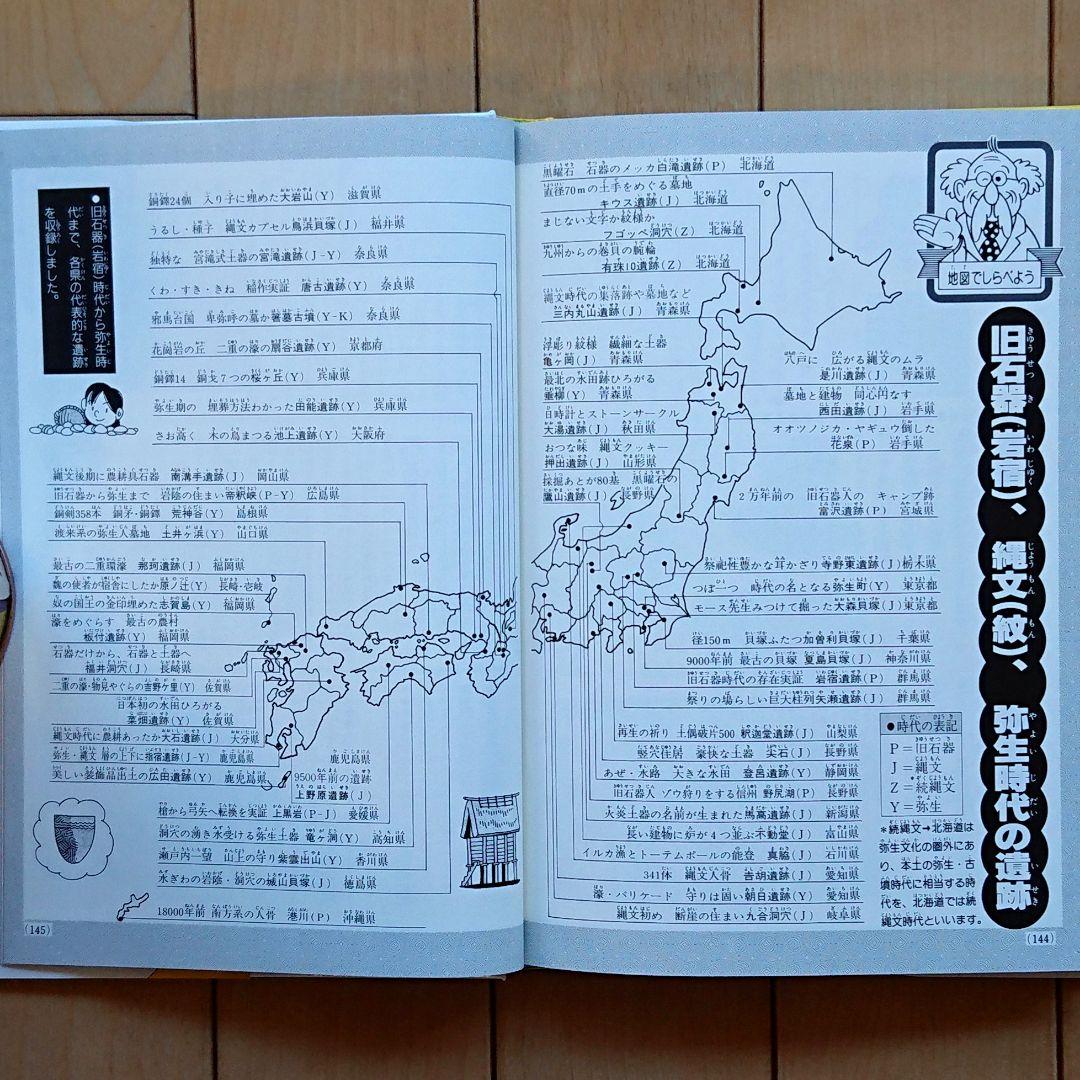 地図でしらべよう
旧石器(岩宿)、縄文(紋)、弥生時代の遺跡
黒曜石 石器のメッカ白滝遺跡(P) 北海道
直径70mの土手をめぐる墓地
キウス遺跡(J) 北海道
まじない文字か紋様か
フゴッペ洞穴(Z) 北海道
九州からの巻貝の腕輪
有珠10遺跡(Z) 北海道
縄文時代の集落跡や墓地など
三内丸山遺跡(J) 青森県
浮彫り紋様 繊細な土器
亀ヶ岡(J) 青森県
最北の水田跡ひろがる
垂柳(Y) 青森県
日時計とストーンサークル
大湯遺跡(J) 秋田県
おつな味 縄文クッキー
押出遺跡(J) 山形県
採掘あとが80基 黒曜石の
鷹山遺跡(J) 長野県
八戸に 広がる縄文のムラ
是川遺跡(J) 青森県
墓地と建物 同心円なす
西田遺跡(J) 岩手県
オオツノジカ・ヤギュウ倒した
花泉(P) 岩手県
2万年前の 旧石器人の キャンプ跡
富沢遺跡(P) 宮城県
祭祀性豊かな耳かざり寺野東遺跡(J) 栃木県
つぼ一つ 時代の名となる弥生町(Y) 東京都
モース先生みつけて掘った大森貝塚(J) 東京都
径150m 貝塚ふたつ加曽利貝塚(J) 千葉県
9000年前 最古の貝塚 夏島貝塚(J) 神奈川県
旧石器時代の存在実証 岩宿遺跡(P) 群馬県
祭りの場らしい巨大柱列矢瀬遺跡(J) 群馬県
再生の祈り 土偶破片500 釈迦堂遺跡(J) 山梨県
竪穴住居 豪快な土器 尖石(J) 長野県
あぜ・水路 大きな水田 登呂遺跡(Y) 静岡県
旧石器人 ゾウ狩りをする信州 野尻湖(P) 長野県
火炎土器の名前が生まれた馬高遺跡(J) 新潟県
長い建物に炉が4つ並ぶ不動堂(J) 富山県
イルカ漁とトーテムポールの能登 真脇(J) 石川県
341体 縄文人骨 吉胡遺跡(J) 愛知県
濠・バリケード 守りは固い朝日遺跡(Y) 愛知県
縄文初め 断崖の住まい九合洞穴(J) 岐阜県
●時代の表記
P=旧石器
J=縄文
Z=続縄文
Y=弥生
*続縄文→北海道は
弥生文化の圏外にあ
り、本土の弥生・古
墳時代に相当する時
代を、北海道では続
縄文時代といいます。
(144)
●旧石器(岩宿)時代から弥生時
代まで、各県の代表的な遺跡
を収録しました。
銅鐸24個 入り子に埋めた大岩山(Y) 滋賀県
うるし・種子 縄文カプセル鳥浜貝塚(J) 福井県
独特な 宮滝式土器の宮滝遺跡(J-Y) 奈良県
くわ・すき・きね 稲作実証 唐古遺跡(Y) 奈良県
邪馬台国 卑弥呼の墓か箸墓古墳(Y-K) 奈良県
花崗岩の丘 二重の濠の扇谷遺跡(Y) 京都府
銅鐸14 銅戈7つの桜ヶ丘(Y) 兵庫県
弥生期の 埋葬方法わかった田能遺跡(Y) 兵庫県
さお高く 木の鳥まつる池上遺跡(Y) 大阪府
縄文後期に農耕具石器 南溝手遺跡(J) 岡山県
旧石器から弥生まで 岩陰の住まい帝釈峡(P-Y) 広島県
銅剣358本 銅矛・銅鐸 荒神谷(Y) 島根県
渡来系の弥生人墓地 土井ヶ浜(Y) 山口県
最古の二重環濠 那珂遺跡(J) 福岡県
魏の使者が宿舎にしたか原ノ辻(Y) 長崎・壱岐
奴の国王の金印埋めた志賀島(Y) 福岡県
濠をめぐらす 最古の農村
板付遺跡(Y) 福岡県
石器だけから、石器と土器へ
福井洞穴(J) 長崎県
二重の濠・物見やぐらの吉野ケ里(Y) 佐賀県
日本初の水田ひろがる
菜畑遺跡(Y) 佐賀県
縄文時代に農耕あったか大石遺跡(J) 大分県
弥生・縄文 層の上下に指宿遺跡(J-Y) 鹿児島県
美しい装飾品出土の広田遺跡(Y) 鹿児島県
鹿児島県
9500年前の遺跡
上野原遺跡(J)
槍から弓矢へ転換を実証 上黒岩(P-J) 愛媛県
洞穴の湧き水受ける弥生土器 竜ヶ洞(Y) 高知県
瀬戸内一望 山上の守り紫雲出山(Y) 香川県
水ぎわの岩陰・洞穴の城山貝塚(J) 徳島県
18000年前 南方系の人骨 港川(P) 沖縄県
(145)